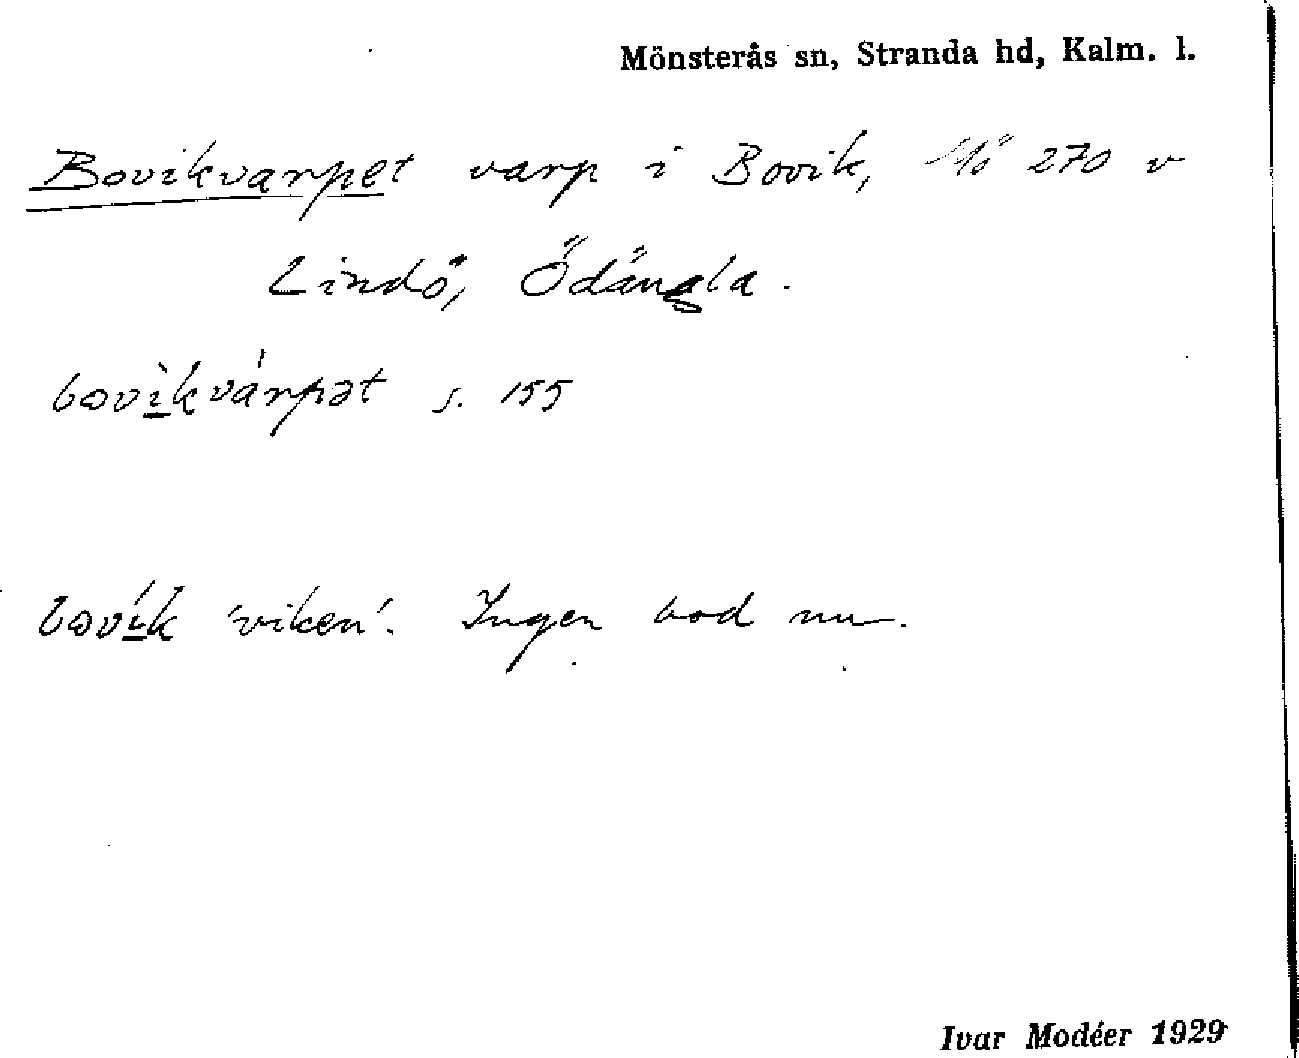 Mönsterås sn, Stranda hd, Kalm. l.
Bovikvarpet varp i Bovik, Mö 270 v
Lindö, Ödängla.
bovìkvárpət s. 155
bovík 'viken'. Ingen bod nu.
Ivar Modéer 1929